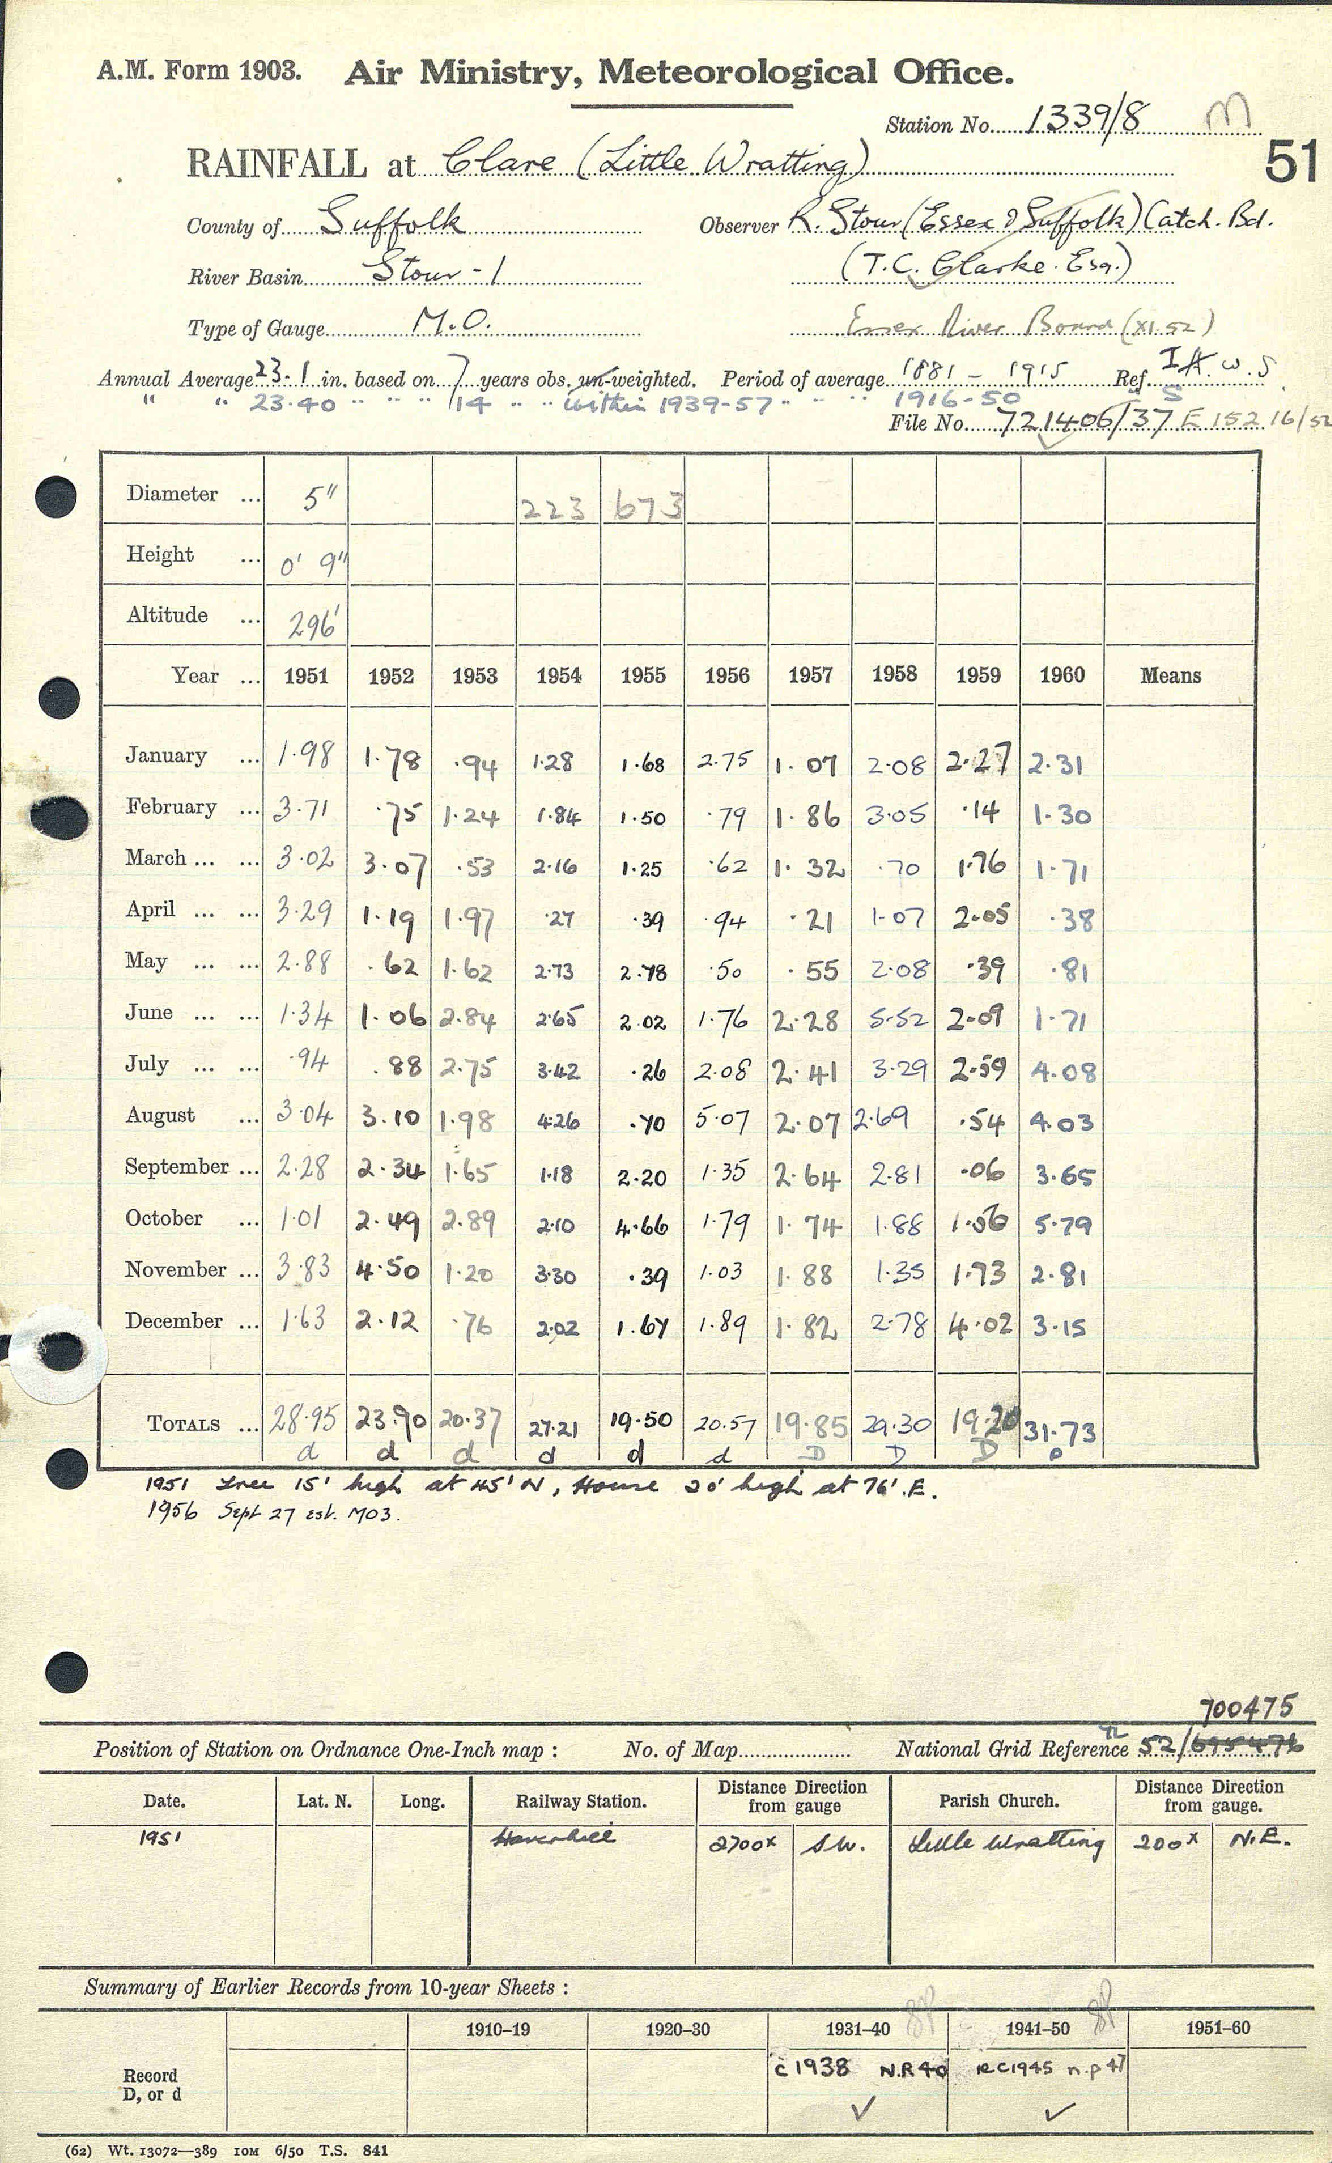 A.M. Form 1903. Air Ministry, Meteorological Office.
Station No. 1339/8 M
51
RAINFALL at Clare (Little Wratting)
County of Suffolk Observer R. Stour (Essex & Suffolk) Catch. Bd.
River Basin Stour - 1 (T.C. Clarke. Esq.)
Type of Gauge M.O. Essex River Board (XI.52)
Annual Average 23.1 in. based on 7 years obs. un-weighted. Period of average 1881 - 1915 Ref. I.A.W.S.
" " 23.40 " " " 14 " " within 1939-57 " " " 1916-50 " S
File No. 721406/37 E 152 16/52
Diameter ... 5" 223 673
Height ... 0' 9"
Altitude ... 296'
Year ... 1951 1952 1953 1954 1955 1956 1957 1958 1959 1960 Means
January ... 1.98 1.78 .94 1.28 1.68 2.75 1.07 2.08 2.27 2.31
February ... 3.71 .75 1.24 1.84 1.50 .79 1.86 3.05 .14 1.30
March ... ... 3.02 3.07 .53 2.16 1.25 .62 1.32 .70 1.76 1.71
April ... ... 3.29 1.19 1.97 .27 .39 .94 .21 1.07 2.05 .38
May ... ... 2.88 .62 1.62 2.73 2.78 .50 .55 2.08 .39 .81
June ... ... 1.34 1.06 2.84 2.65 2.02 1.76 2.28 5.52 2.09 1.71
July ... ... .94 .88 2.75 3.42 .26 2.08 2.41 3.29 2.59 4.08
August ... 3.04 3.10 1.98 4.26 .70 5.07 2.07 2.69 .54 4.03
September ... 2.28 2.34 1.65 1.18 2.20 1.35 2.64 2.81 .06 3.65
October ... 1.01 2.49 2.89 2.10 4.66 1.79 1.74 1.88 1.56 5.79
November ... 3.83 4.50 1.20 3.30 .39 1.03 1.88 1.35 1.73 2.81
December ... 1.63 2.12 .76 2.02 1.67 1.89 1.82 2.78 4.02 3.15
TOTALS ... 28.95 23.90 20.37 27.21 19.50 20.57 19.85 29.30 19.20 31.73
d d d d d d D D D D
1951 Tree 15' high at 45' N, House 20' high at 76'.E.
1956 Sept 27 est. MO3.
700475
Position of Station on Ordnance One-Inch map : No. of Map National Grid Reference 52/695476
TL
Date. Lat. N. Long. Railway Station. Distance from gauge Direction Parish Church. Distance from gauge. Direction
1951 Haverhill 2700x S.W. Little Wratting 200x N.E.
Summary of Earlier Records from 10-year Sheets :
1910–19 1920–30 1931–40 1941–50 1951–60
Record D, or d C1938 N.R40 RC1945 n.p 47
✓ ✓
(62) Wt. 13072—389 10M 6/50 T.S. 841